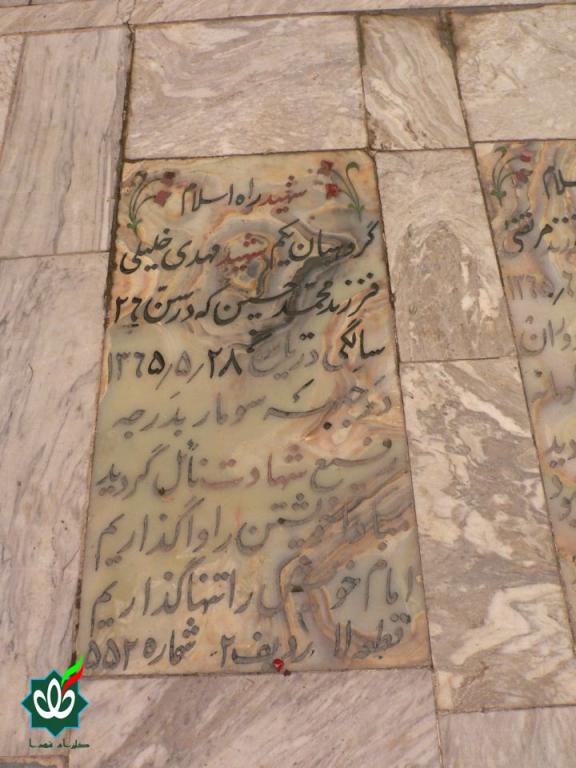 شهید راه اسلام
گروهبان یکم شهید مهدی خلیلی
فرزند محمدحسین که در سن ۲۶
سالگی در تاریخ ۱۳۶۵٫۵٫۲۸
در جبهه سومار بدرجه
رفیع شهادت نائل گردید
مبادا خویشتن را واگذاریم
امام خویش را تنها گذاریم
قطعه ۱۱ ردیف ۲ شماره ۵۵۲